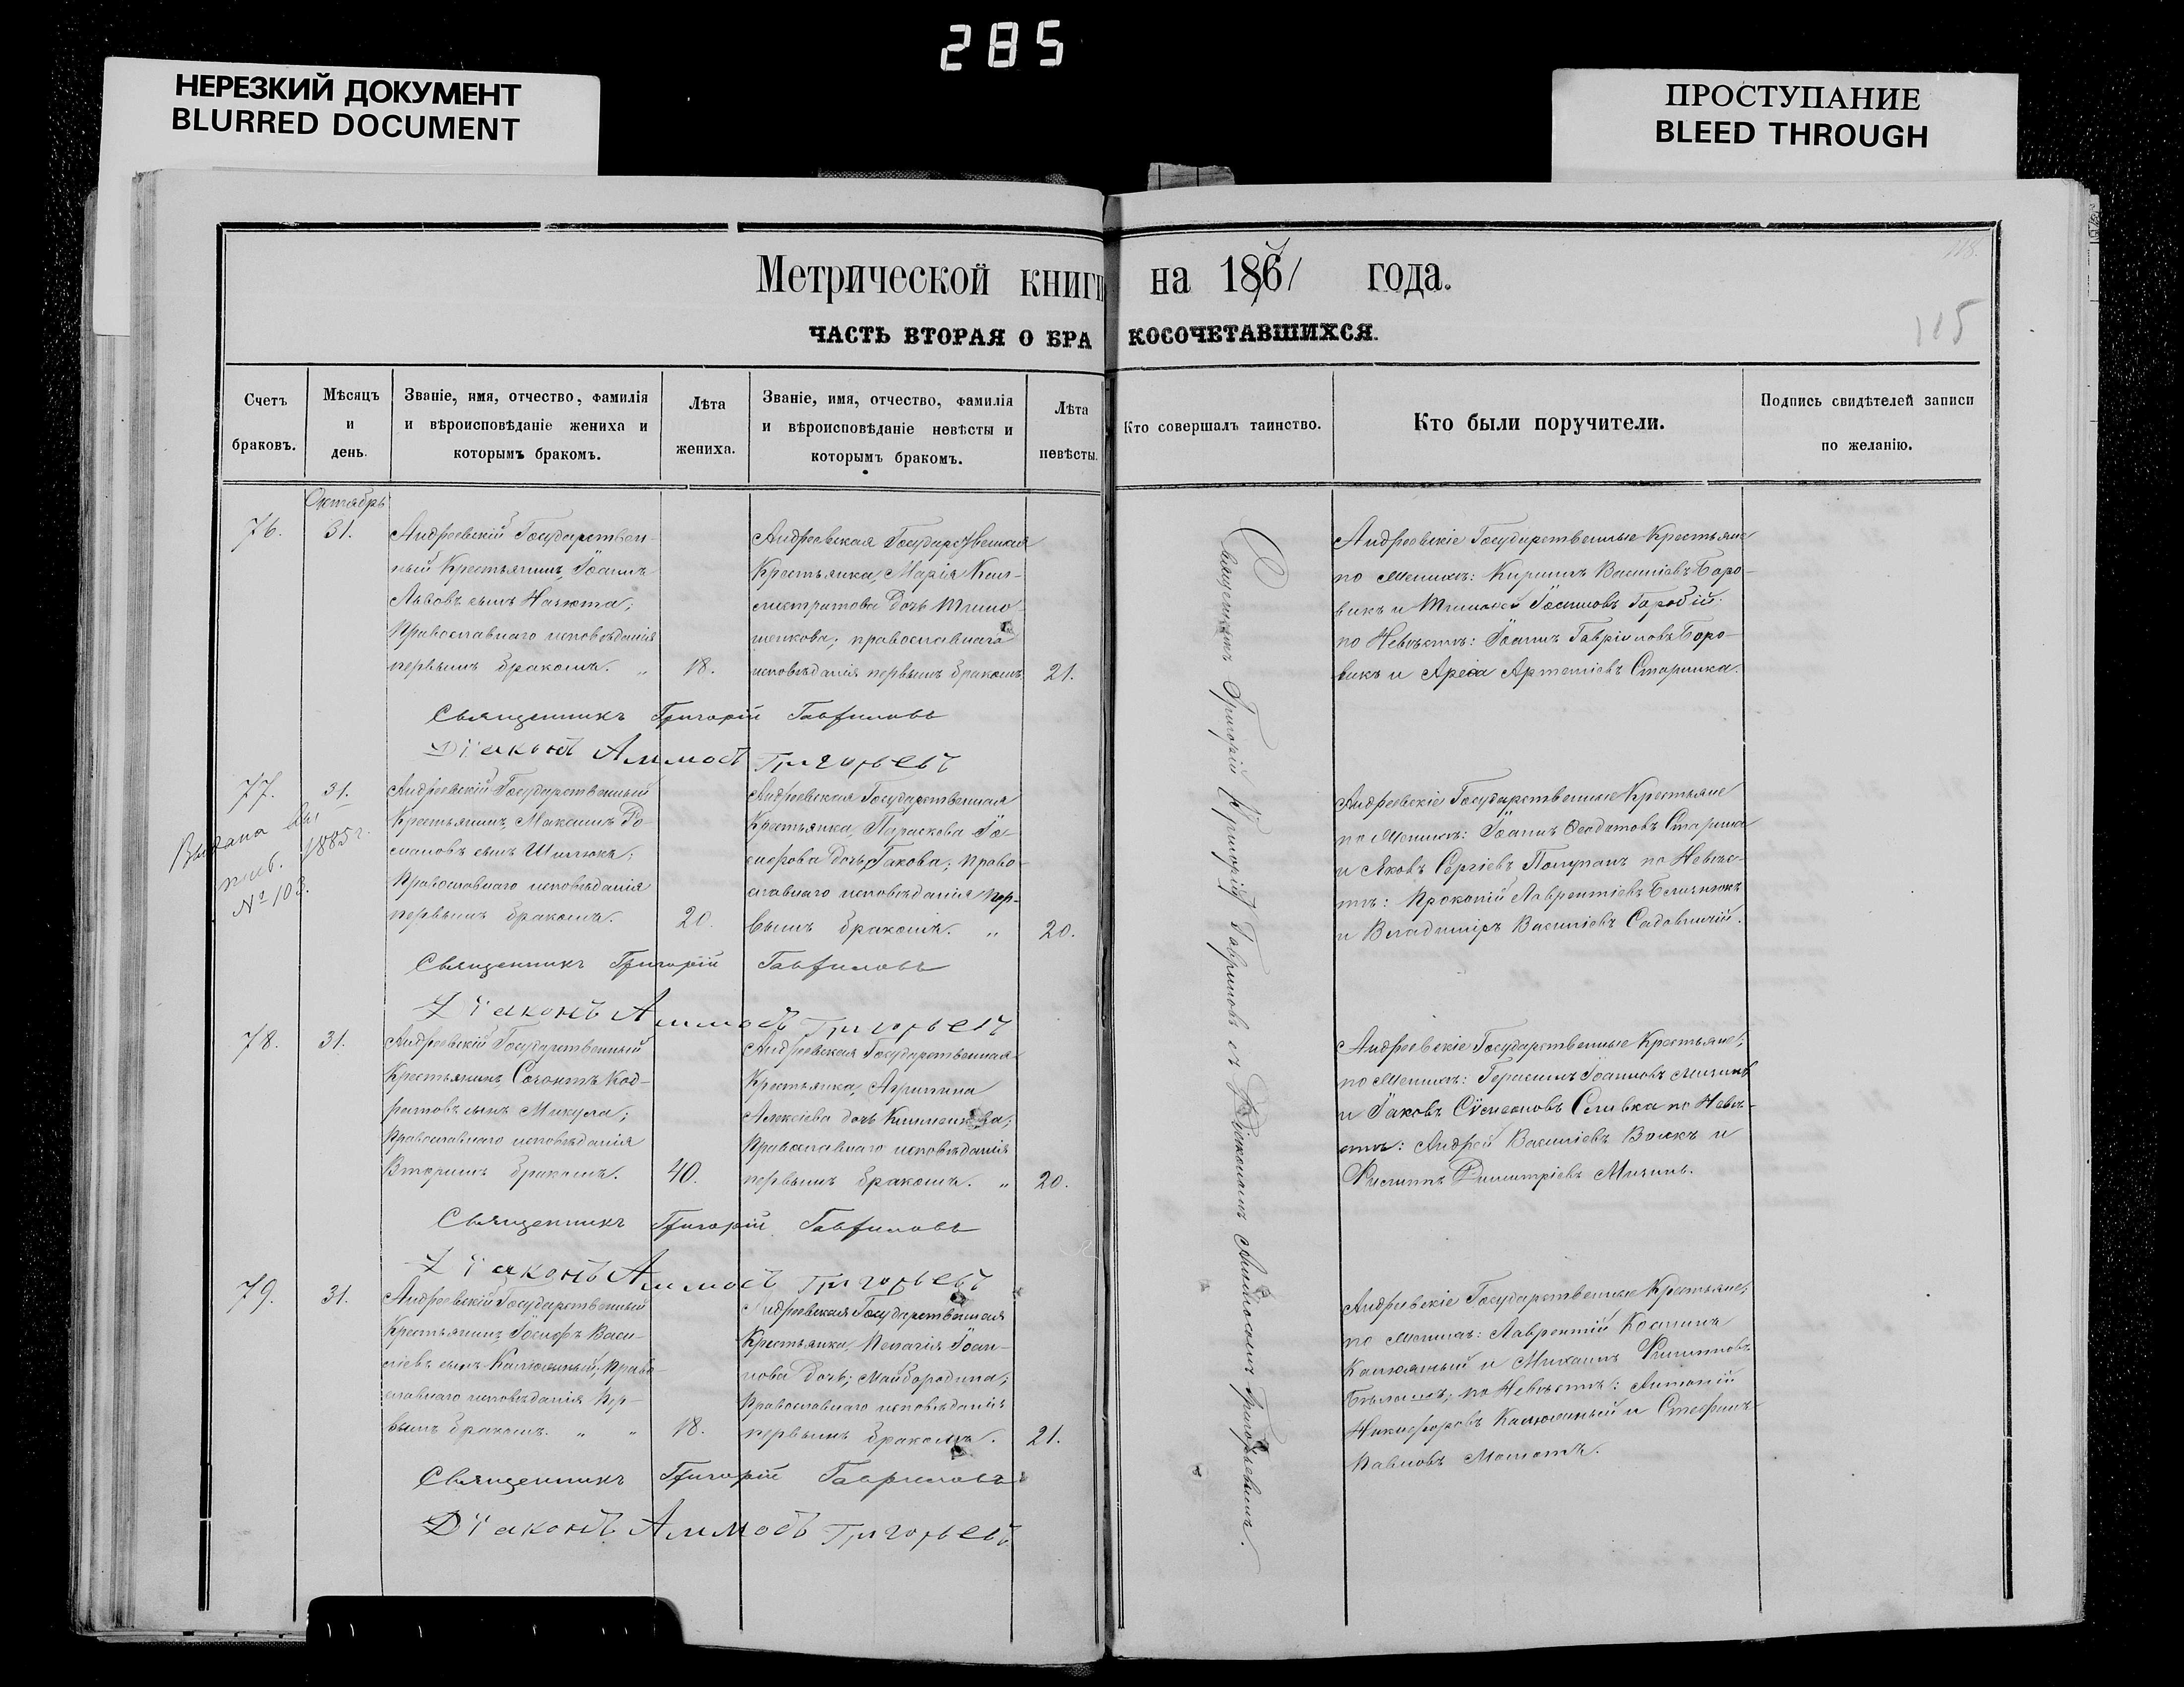 285
НЕРЕЗКИЙ ДОКУМЕНТ
BLURRED DOCUMENT
ПРОСТУПАНИЕ
BLEED THROUGH
Метрической книги на 1867 года.
115
ЧАСТЬ ВТОРАЯ О БРАКОСОЧЕТАВШИХСЯ.
Счетъ браковъ.
Мѣсяцъ и день.
Званіе, имя, отчество, фамилія и вѣроисповѣданіе жениха и которымъ бракомъ.
Лѣта жениха.
Званіе, имя, отчество, фамилія и вѣроисповѣданіе невѣсты и которымъ бракомъ.
Лѣта невѣсты.
Кто совершалъ таинство.
Кто были поручители.
Подпись свидѣтелей записи по желанію.
Октябрь
76.
31.
Андреевскій Государствен-
ный Крестьянинъ, Іоаннъ
Львовъ сынъ
Православнаго исповѣданія
первымъ бракомъ. „
18.
Андреевская Государственная
Крестьянка, Марія
дочь Тимо-
шенкова; православнаго
исповѣданія первымъ бракомъ
21.
Андреевскіе Государственные Крестьяне
по Женихѣ: Кириллъ Василіевъ Боро-
викъ и Іоанновъ
по Невѣстѣ: Іоаннъ Гавріиловъ Боро-
викъ и Артеміевъ Старинка.
Священникъ Григорій Гавриловъ
Діаконъ Аммосъ Григорьевъ
77.
31.
Выдана
1885 г.
№ 103.
Андреевскій Государственный
Крестьянинъ, Максимъ Ро-
мановъ сынъ
Православнаго исповѣданія
первымъ бракомъ.
20.
Андреевская Государственная
Крестьянка, Параскова Іо-
сифова дочь, право-
славнаго исповѣданія пер-
вымъ бракомъ. „
20.
Андреевскіе Государственные Крестьяне
по Женихѣ: Іоаннъ Ѳеодотовъ Старинка
и Яковъ Сергіевъ по Невѣс-
тѣ: Прокопій Лаврентіевъ
и Владиміръ Василіевъ Садовничій.
Священникъ Григорій Гавриловъ
Діаконъ Аммосъ Григорьевъ
78.
31.
Андреевскій Государственный
Крестьянинъ, Созонтъ Код-
ратовъ сынъ Микула;
Православнаго исповѣданія
Вторымъ бракомъ.
40.
Андреевская Государственная
Крестьянка, Агрипина
Алексіева дочь
Православнаго исповѣданія
первымъ бракомъ. „
20.
Андреевскіе Государственные Крестьяне;
по Женихѣ: Герасимъ Іоанновъ
и Іаковъ Сѵмеоновъ Сливка по Невѣ-
стѣ: Андрей Василіевъ и
Филиппъ Димитріевъ
Священникъ Григорій Гавриловъ
Діаконъ Аммосъ Григорьевъ
79.
31.
Андреевскій Государственный
Крестьянинъ Іосифъ Васи-
ліевъ сынъ Право-
славнаго исповѣданія пер-
вымъ бракомъ. „ „
18.
Андреевская Государственная
Крестьянка, Пелагія Іоан-
нова дочь; Майбородина;
Православнаго исповѣданія
первымъ бракомъ.
21.
Андреевскіе Государственные Крестьяне;
по Женихѣ: Лаврентій
и Михаилъ Филипповъ
по Невѣстѣ: Антоній
Никифоровъ и Стефанъ
Павловъ
Священникъ Григорій Гавриловъ
Діаконъ Аммосъ Григорьевъ
Священникъ Григорій Гавриловъ съ Діакономъ Аммосомъ Григорьевымъ.